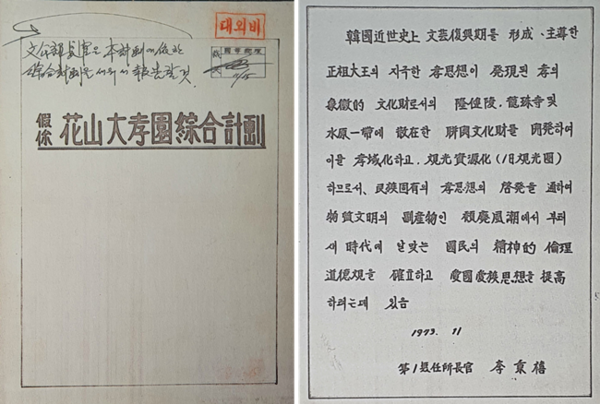 대외비
文公部長官은 本計劃에 依한
綜合計劃을 세워서 報告할 것
假称 花山大孝園綜合計劃
韓國近世史上 文芸復興期를 形成、主導한
正祖大王의 지극한 孝思想이 發現된 孝의
象徵的 文化財로서의 隆健陵、龍珠寺 및
水原一帶에 散在한 聯関文化財를 開発하여
이를 孝域化하고、観光資源化(1日観光圈)
하므로서、民族固有의 孝思想의 啓発을 通하여
物質文明의 副産物인 頹廃風潮에서 부터
새 時代에 알맞는 國民의 精神的 倫理
道德観을 確立하고 愛國愛族思想을 提高
하려는데 있음
1973. 11
第1無任所長官 李秉禧